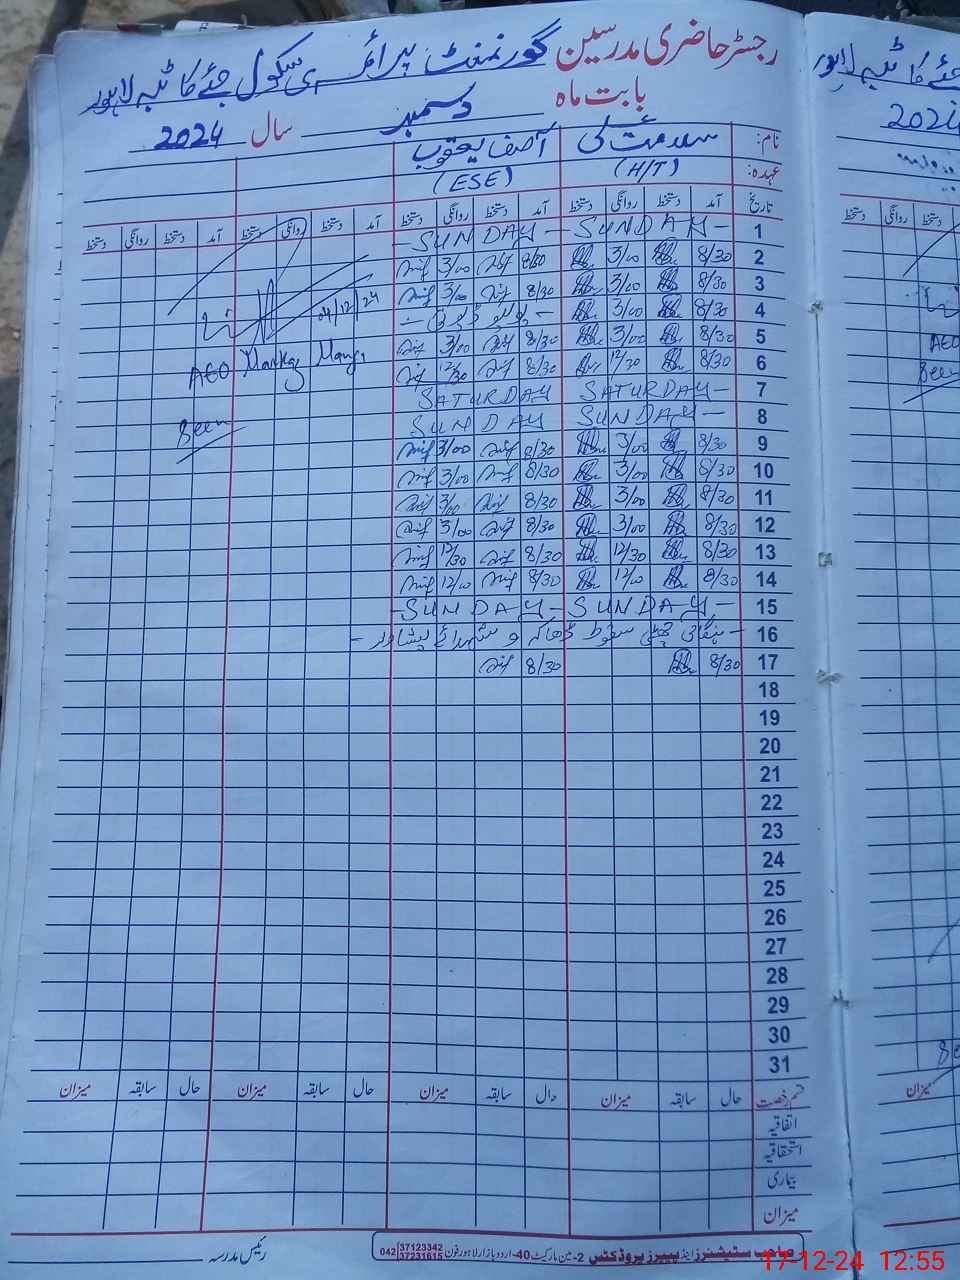 رجسٹر حاضری مدرسین گورنمنٹ پرائمری سکول جئے کا ٹبہ لاہور
بابت ماہ دسمبر سال 2024
نام: سلامت علی آصف یعقوب
عہدہ: (H/T) (ESE)
تاریخ آمد دستخط روانگی دستخط آمد دستخط روانگی دستخط آمد دستخط روانگی دستخط آمد دستخط روانگی دستخط
1 - SUNDAY - SUNDAY -
2 8/30 3/00 8/30 3/00
3 8/30 3/00 8/30 3/00 04/12/24
4 8/30 3/00 - پولیو ڈیوٹی -
5 8/30 3/00 8/30 3/00 AEO Markaz Manga
6 8/30 12/30 8/30 12/30
7 SATURDAY - SATURDAY
8 SUNDAY - SUNDAY Seen
9 8/30 3/00 8/30 3/00
10 8/30 3/00 8/30 3/00
11 8/30 3/00 8/30 3/00
12 8/30 3/00 8/30 3/00
13 8/30 12/30 8/30 12/30
14 8/30 12/00 8/30 12/00
15 - SUNDAY - SUNDAY -
16 - ہنگامی چھٹی سقوط ڈھاکہ و شہدائے پشاور -
17 8/30 8/30
18
19
20
21
22
23
24
25
26
27
28
29
30
31
قسم رخصت حال سابقہ میزان حال سابقہ میزان حال سابقہ میزان حال سابقہ میزان
اتفاقیہ
استحقاقیہ
بیماری
میزان
رئیس مدرسہ
صاحب سٹیشنرز اینڈ پیپرز پروڈکٹس 2-مین مارکیٹ 40-اردو بازار لاہور فون 042 37123342 37231615
17-12-24 12:55
2024
AEO
Seen
میزان